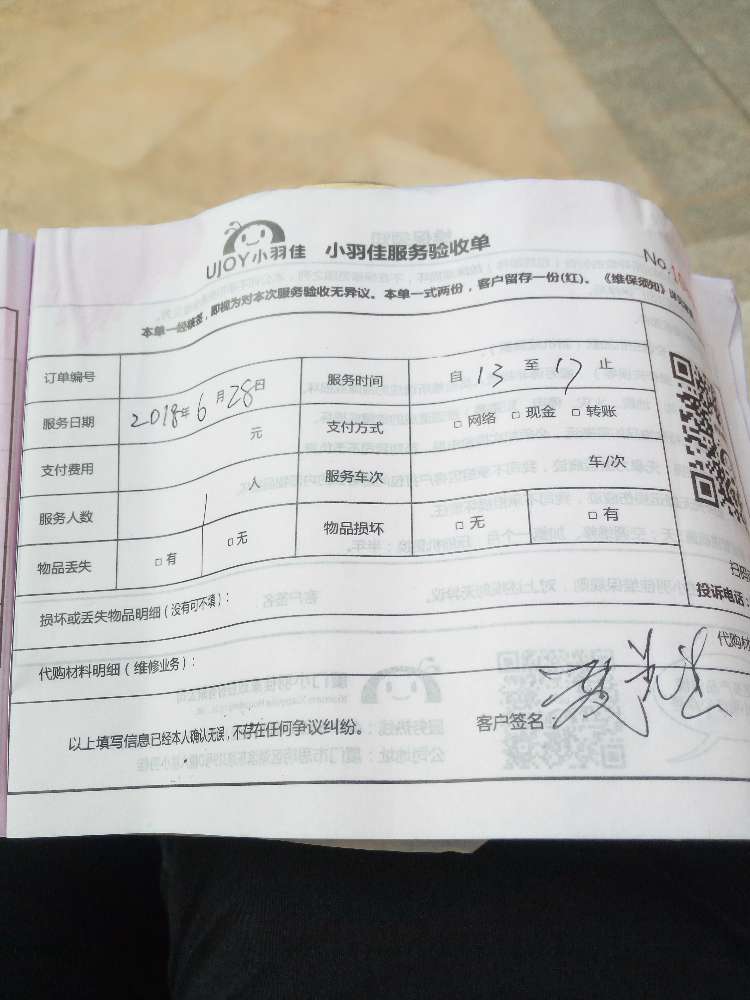 UJOY小羽佳 小羽佳服务验收单
No.1
本单一经核签,即视为对本次服务验收无异议。本单一式两份,客户留存一份(红)。《维保须知》
订单编号 服务时间 自 13 至 17 止
服务日期 2018年6月28日 支付方式 □网络 □现金 □转账
支付费用 元 服务车次 车/次
服务人数 1 人 物品损坏 □无 □有
物品丢失 □有 □无
损坏或丢失物品明细(没有可不填):
投诉电话:
代购材料明细(维修业务): 代购材
以上填写信息已经本人确认无误,不存在任何争议纠纷。 客户签名: